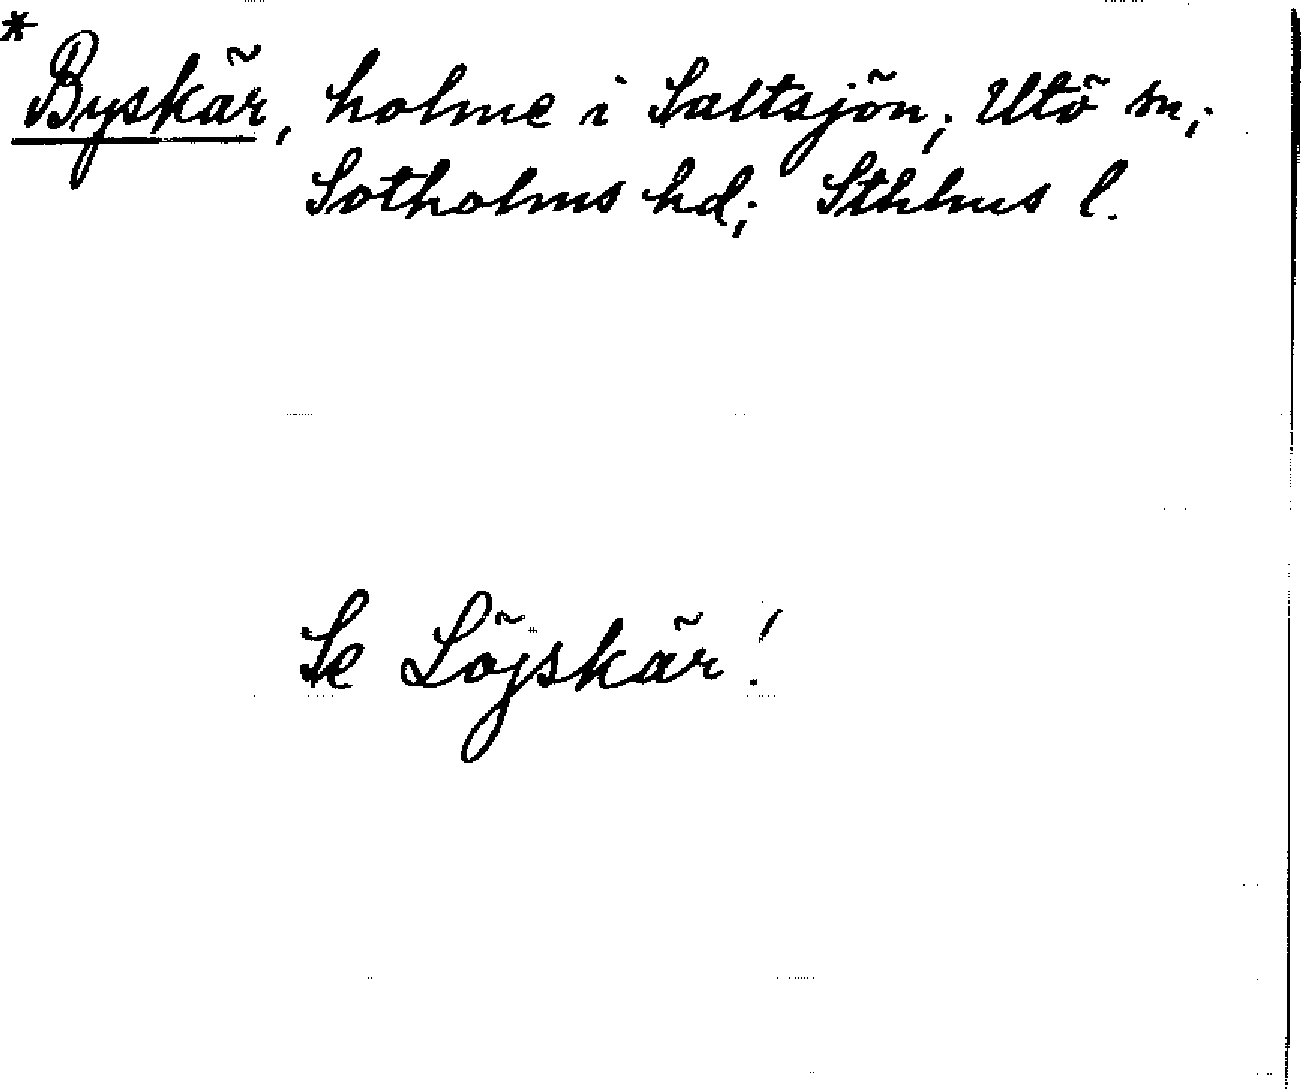 * Byskär, holme i Saltsjön; Utö sn;
Sotholms hd; Sthlms l.
Se Löjskär!